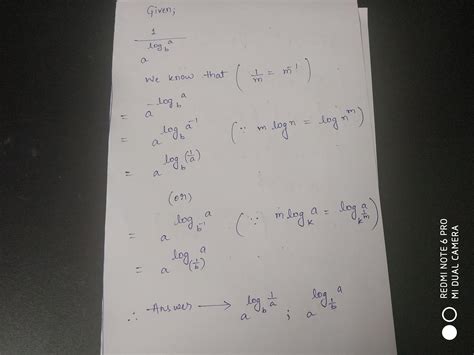 Given;
1 / a^(log_b a)
We know that ( 1/m = m^-1 )
= a^(-log_b a)
= a^(log_b a^-1) (∵ m log n = log n^m)
= a^(log_b (1/a))
(or)
= a^(log_(b^-1) a) (∵ m log_k a = log_(k^m) a)
= a^(log_(1/b) a)
∴ Answer → a^(log_b 1/a) ; a^(log_(1/b) a)
REDMI NOTE 6 PRO
MI DUAL CAMERA